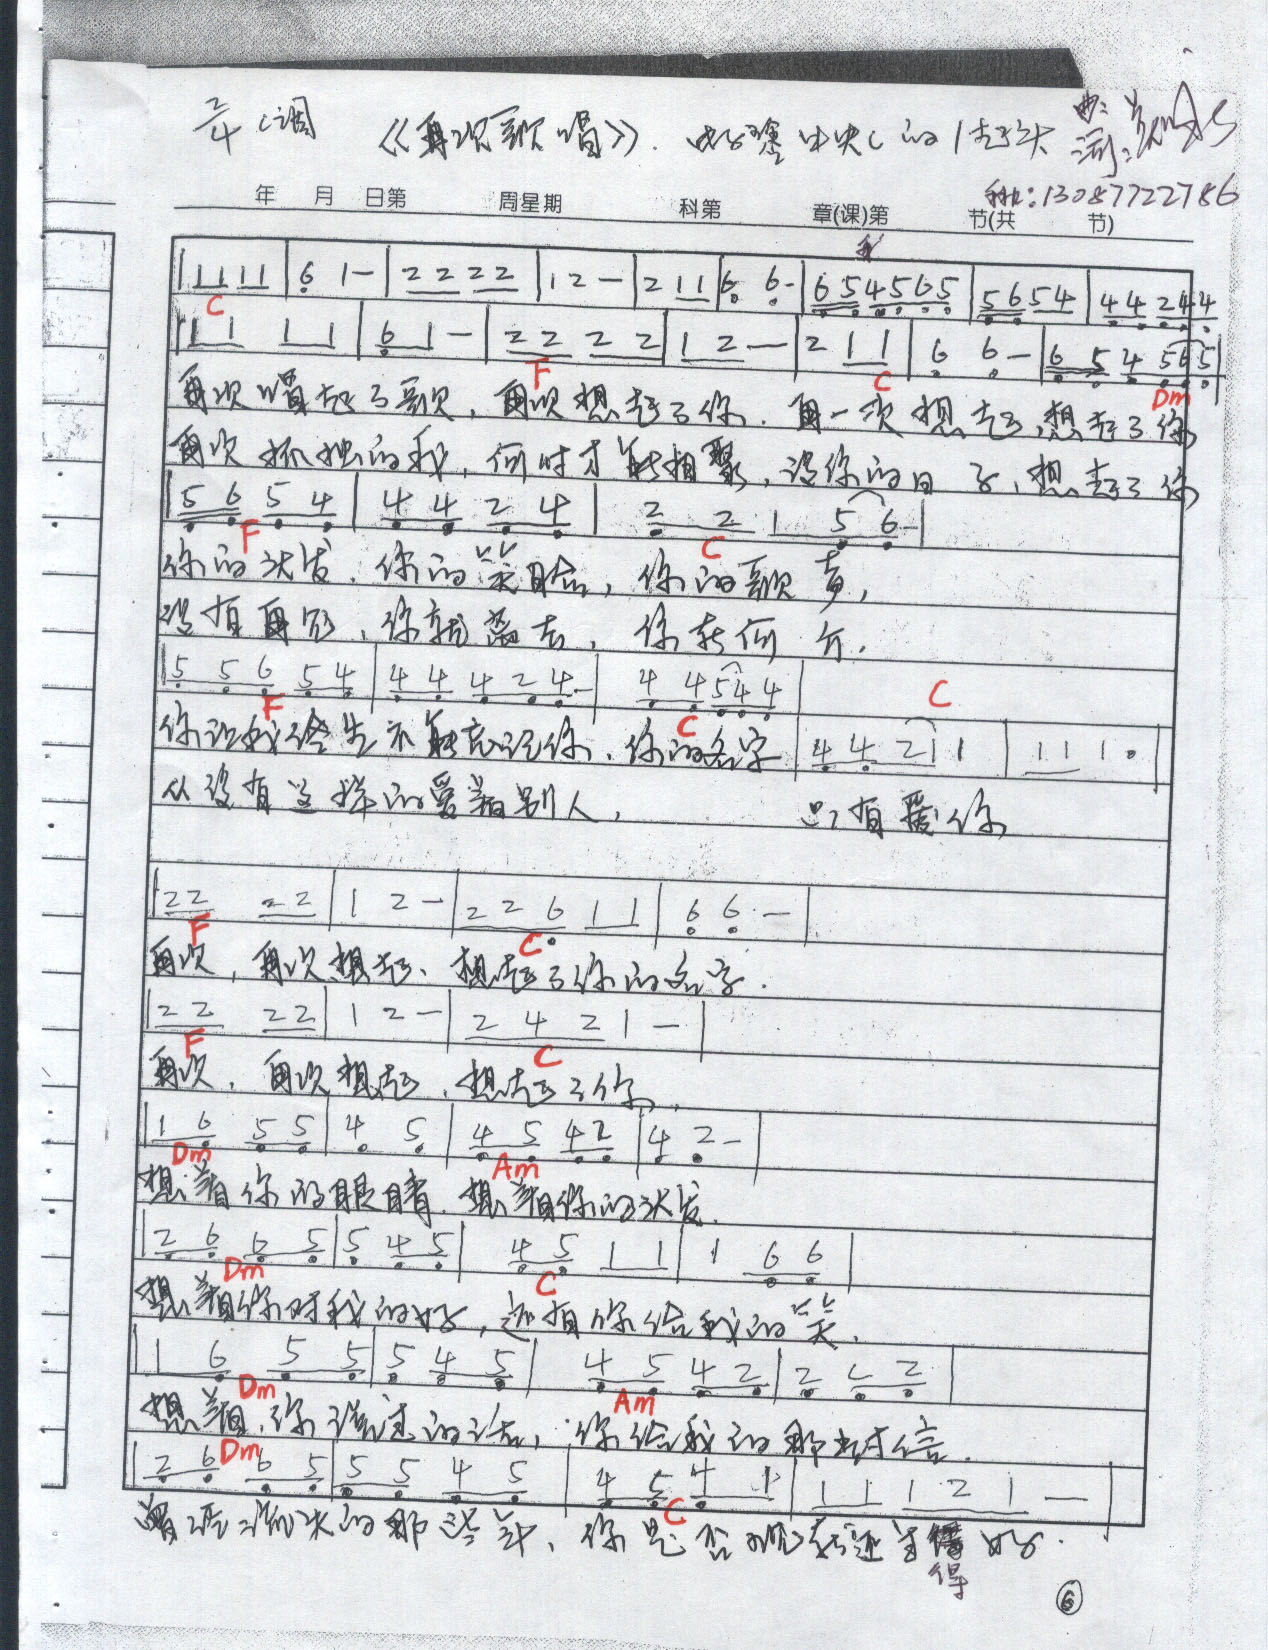 2/4 C调 《再次歌唱》. 女好 中央C的1起头 曲:
词:
手机:13087722786
年 月 日第 周星期 科第 章(课)第 节(共 节)
1 1 1 1 | 6 1 — | 2 2 2 2 | 1 2 — | 2 1 1 | 6 6 - | 6 5 4 5 6 5 | 5 6 5 4 | 4 4 2 4 4
C
1 1 1 1 | 6 1 — | 2 2 2 2 | 1 2 — | 2 1 1 | 6 6 — | 6 5 4 5 6 5 |
F C Dm
再次唱起了歌,再次想起了你.再一次想起,想起了你
再次孤独的我,何时才能相聚,没你的日子,想起了你
5 6 5 4 | 4 4 2 4 | 2 2 1 5 6 - |
F C
你的头发.你的笑脸,你的歌声,
没有再见,你就离去,你在何方.
5 5 6 5 4 | 4 4 4 2 4 - | 4 4 5 4 4
F C C
你让我终生不能忘记你.你的名字 | 4 4 2 1 1 | 1 1 1 0 |
从没有这样的爱着别人, 只有爱你
2 2 2 2 | 1 2 — | 2 2 6 1 1 | 6 6 · — |
F C
再次,再次想起、想起了你的名字.
2 2 2 2 | 1 2 — | 2 4 2 1 — |
F C
再次.再次想起,想起了你,
1 6 5 5 | 4 5 | 4 5 4 2 | 4 2 - |
Dm Am
想着你的眼睛.想着你的头发.
2 6 6 5 | 5 4 5 | 4 5 1 1 | 1 6 6 |
Dm C
想着你对我的好,还有你给我的笑.
1 6 5 5 | 5 4 5 | 4 5 4 2 | 2 2 2 |
Dm Am
想着,你说过的话,你给我的那封信.
Dm
2 6 6 5 | 5 5 4 5 | 4 5 4 1 | 1 1 1 2 1 — |
C
曾经流失的那些年、你是否现在还过好.
得
6